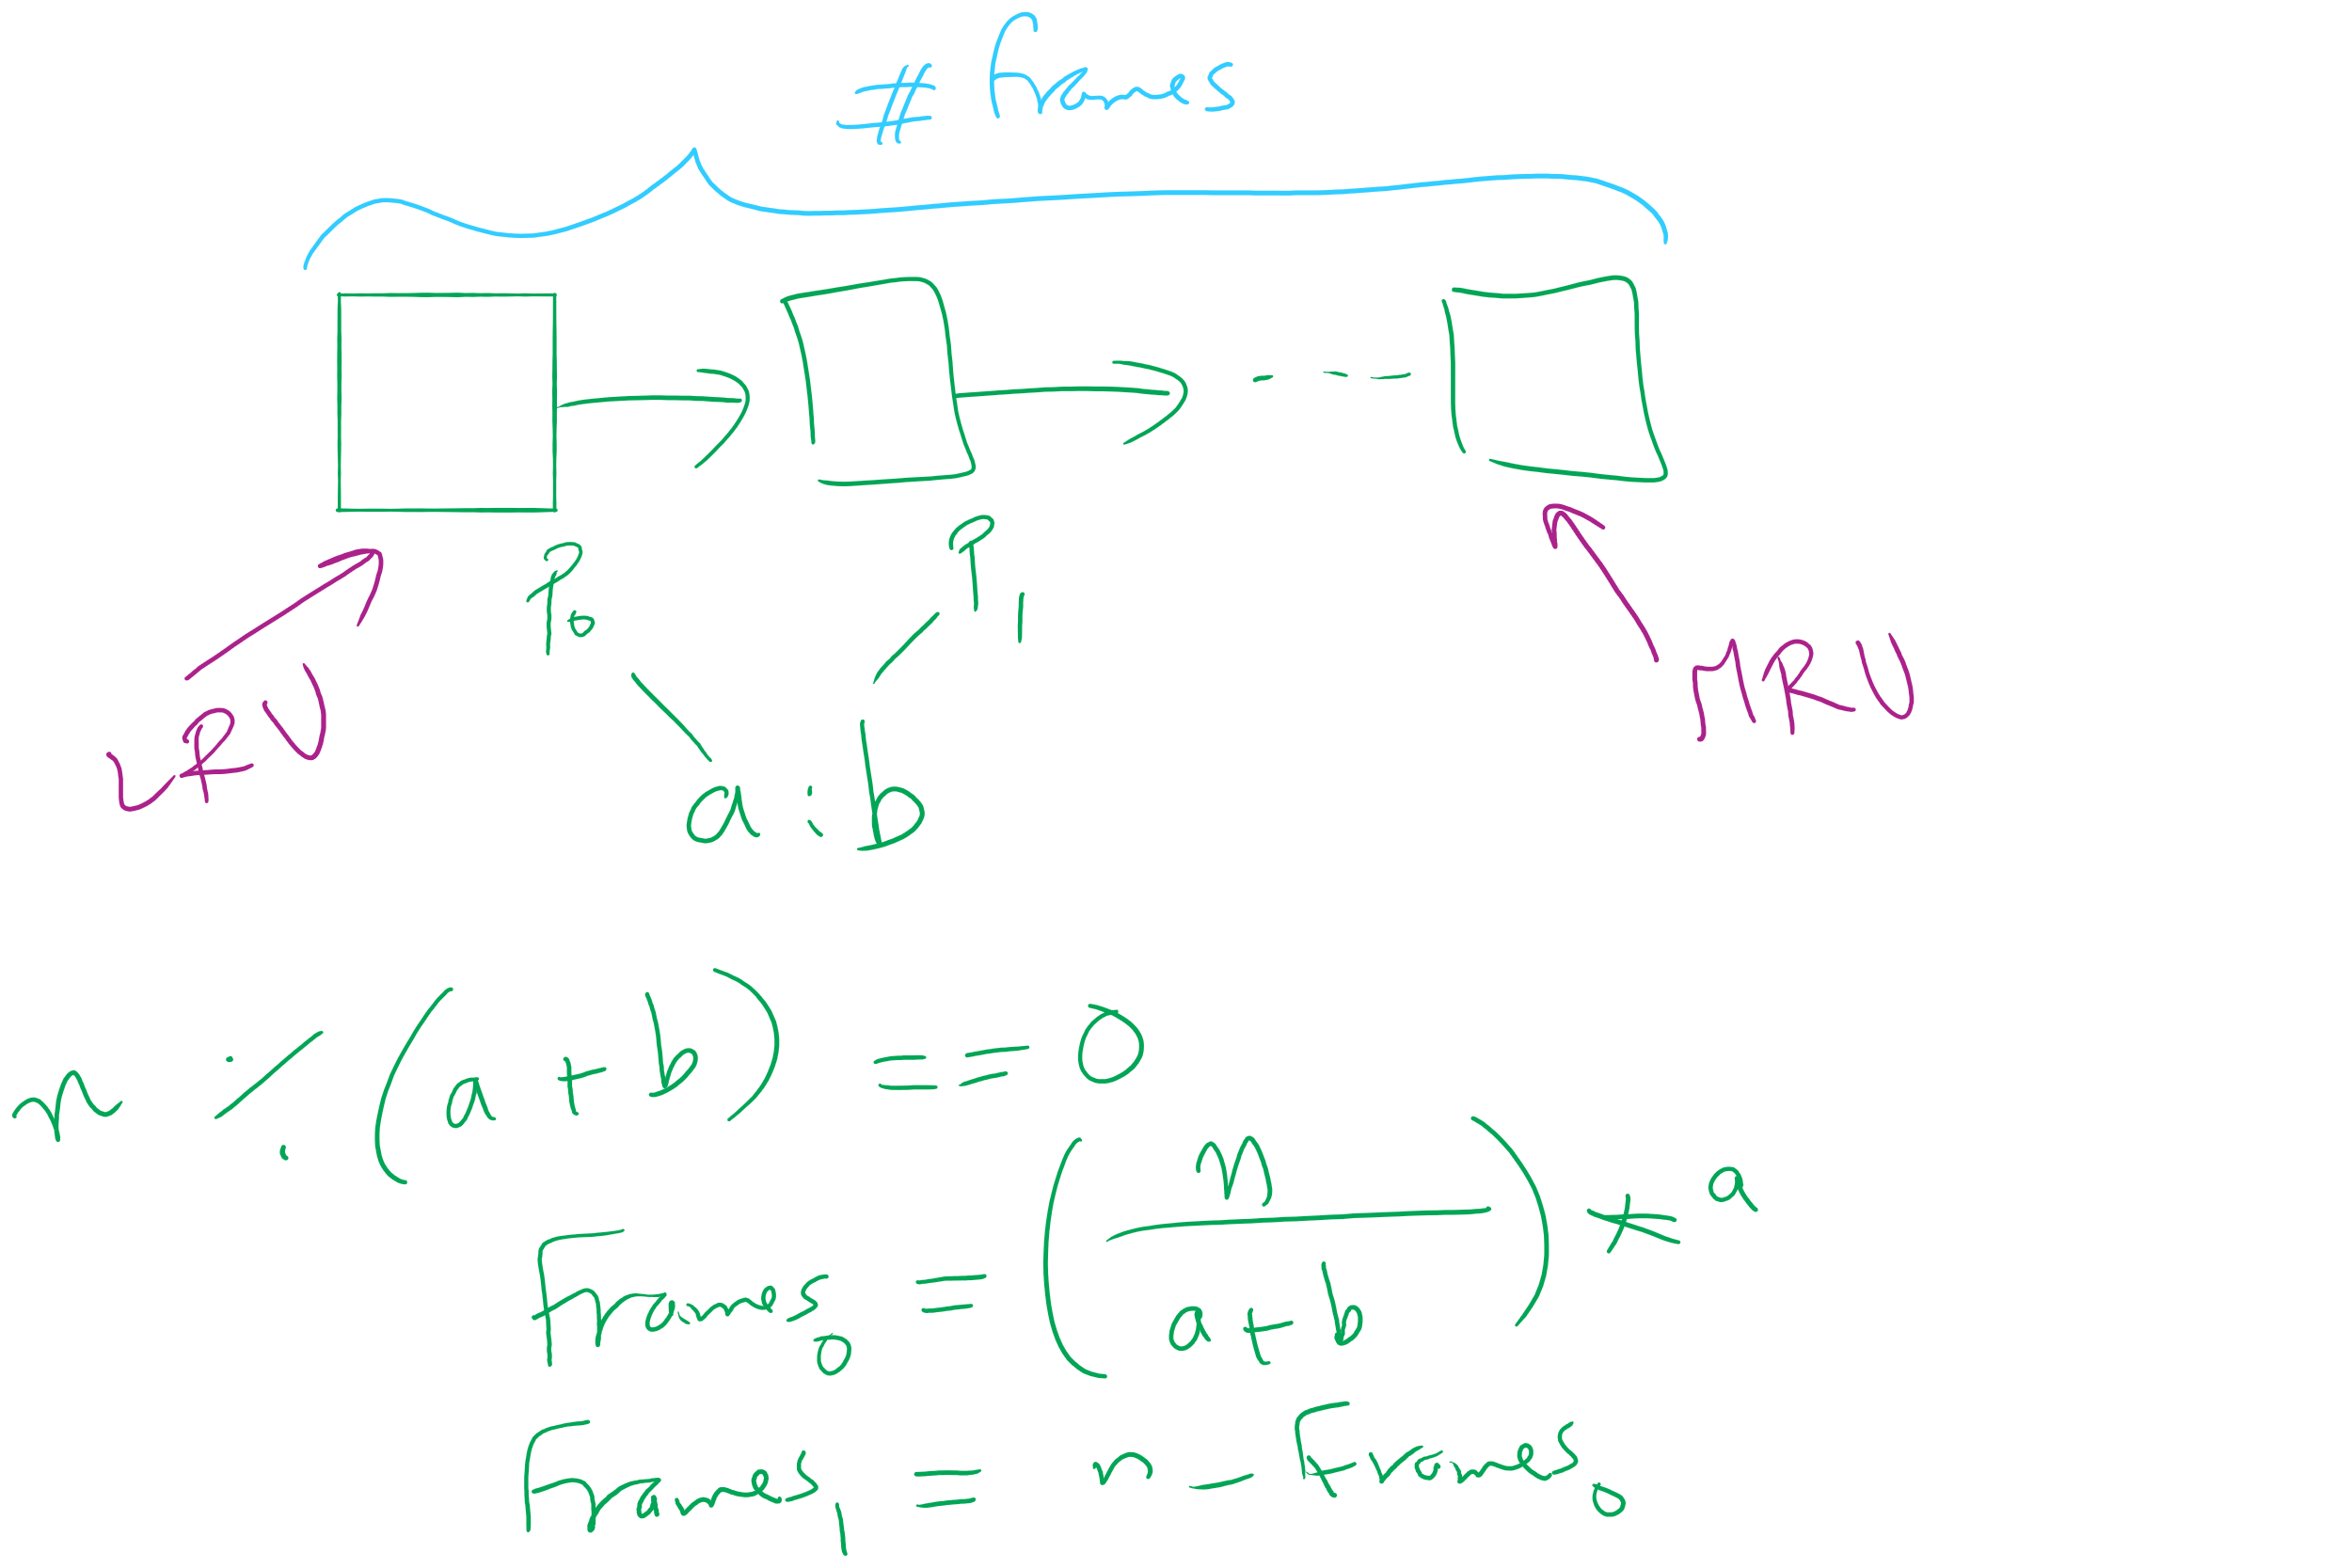 # frames
P₀ P₁
LRU MRU
a : b
n % (a + b) == 0
Frames₀ = (n / a+b) * a
Frames₁ = n - Frames₀